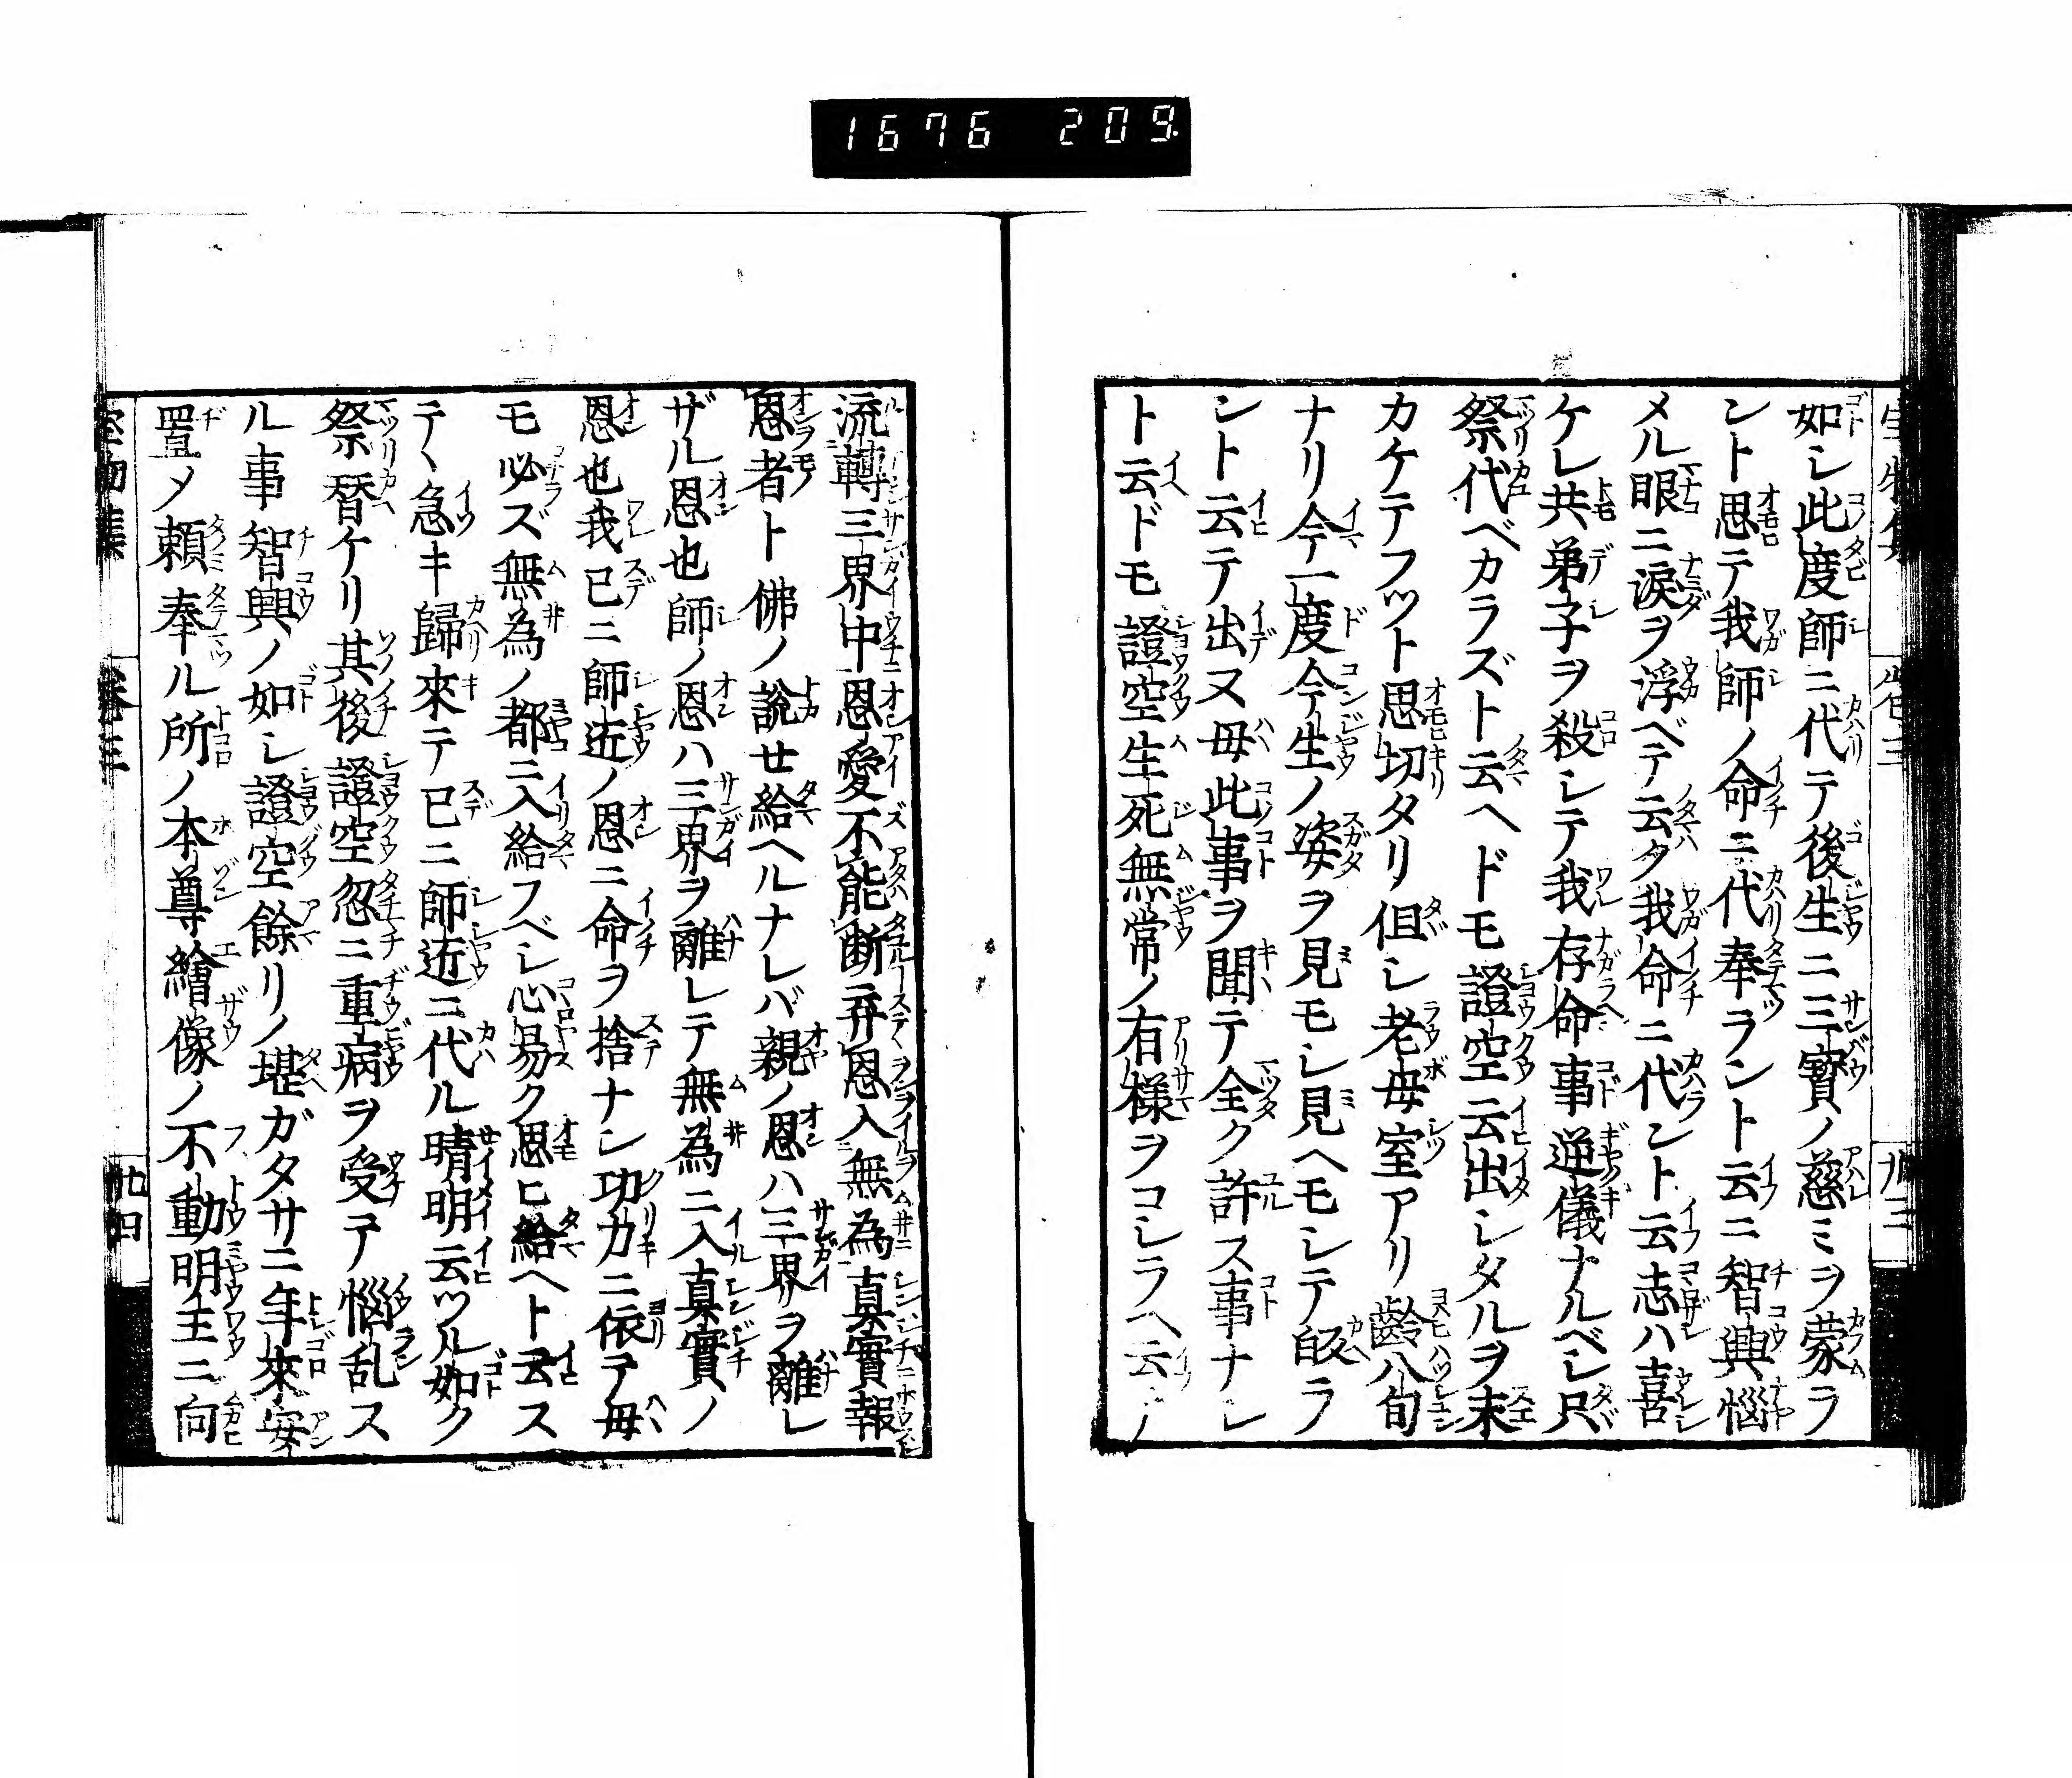 1676 209
如シ此度師ニ代テ後生ニ三寳ノ慈ミヲ蒙ラ
ント思テ我師ノ命ニ代奉ラント云ニ智興惱
メル眼ニ淚ヲ浮ベテ云ク我命ニ代ント云志ハ喜
ケレ共弟子ヲ殺シテ我存命事逆儀ナルベシ只
祭代ベカラズト云ヘドモ證空云出シタルヲ末
カケテフツト思切タリ但シ老母室アリ齡八旬
ナリ今一度今生ノ姿ヲ見モシ見ヘモシテ皈ラ
ント云テ出ヌ母此事ヲ聞テ全ク許ス事ナシ
ト云ドモ證空生死無常ノ有樣ヲコシラヘ云ノ
流轉三界中恩愛不能断弃恩入無為真實報
恩者ト佛ノ説せ給ヘルナレバ親ノ恩ハ三界ヲ離レ
ザル恩也師ノ恩ハ三界ヲ離レテ無為ニ入真實ノ
恩也我已ニ師匠ノ恩ニ命ヲ捨ナン功力ニ依テ母
モ必ズ無為ノ都ニ入給フベシ心易ク思ヒ給ヘト云ス
テヽ急キ歸來テ已ニ師匠ニ代ル晴明云ツル如ク
祭替ケリ其後證空忽ニ重病ヲ受テ惱乱ス
ル事智興ノ如シ證空餘リノ堪ガタサニ年來安
置メ頼奉ル所ノ本尊繪像ノ不動明王ニ向
卷三
九四